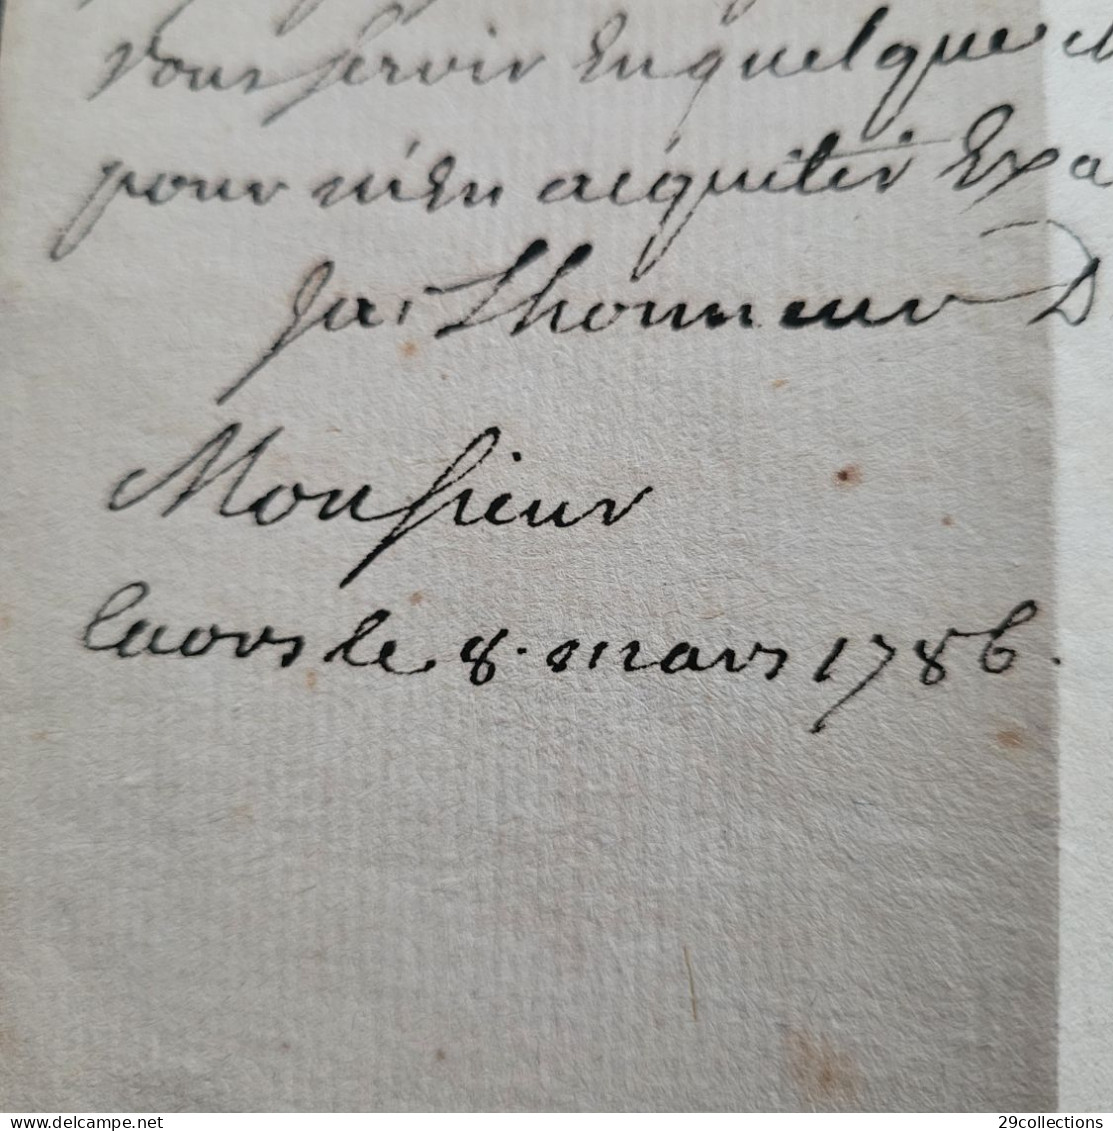 Vous servir En quelque
pour m'En acquiter Exa
Jai Lhonneur D
Monsieur
Caors le 8. mars 1786.
delcampe.net
29collections